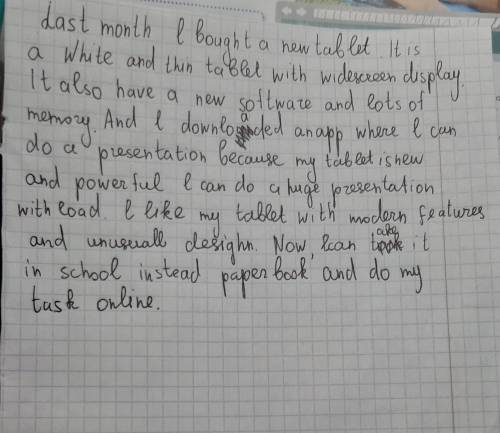 Last month I bought a new tablet. It is
a white and thin tablet with widescreen display.
It also have a new software and lots of
memory. And I downloaded an app where I can
do a presentation because my tablet is new
and powerful I can do a huge presentation
with load. I like my tablet with modern features
and unusuall desighn. Now, I can take it
in school instead paper book and do my
task online.